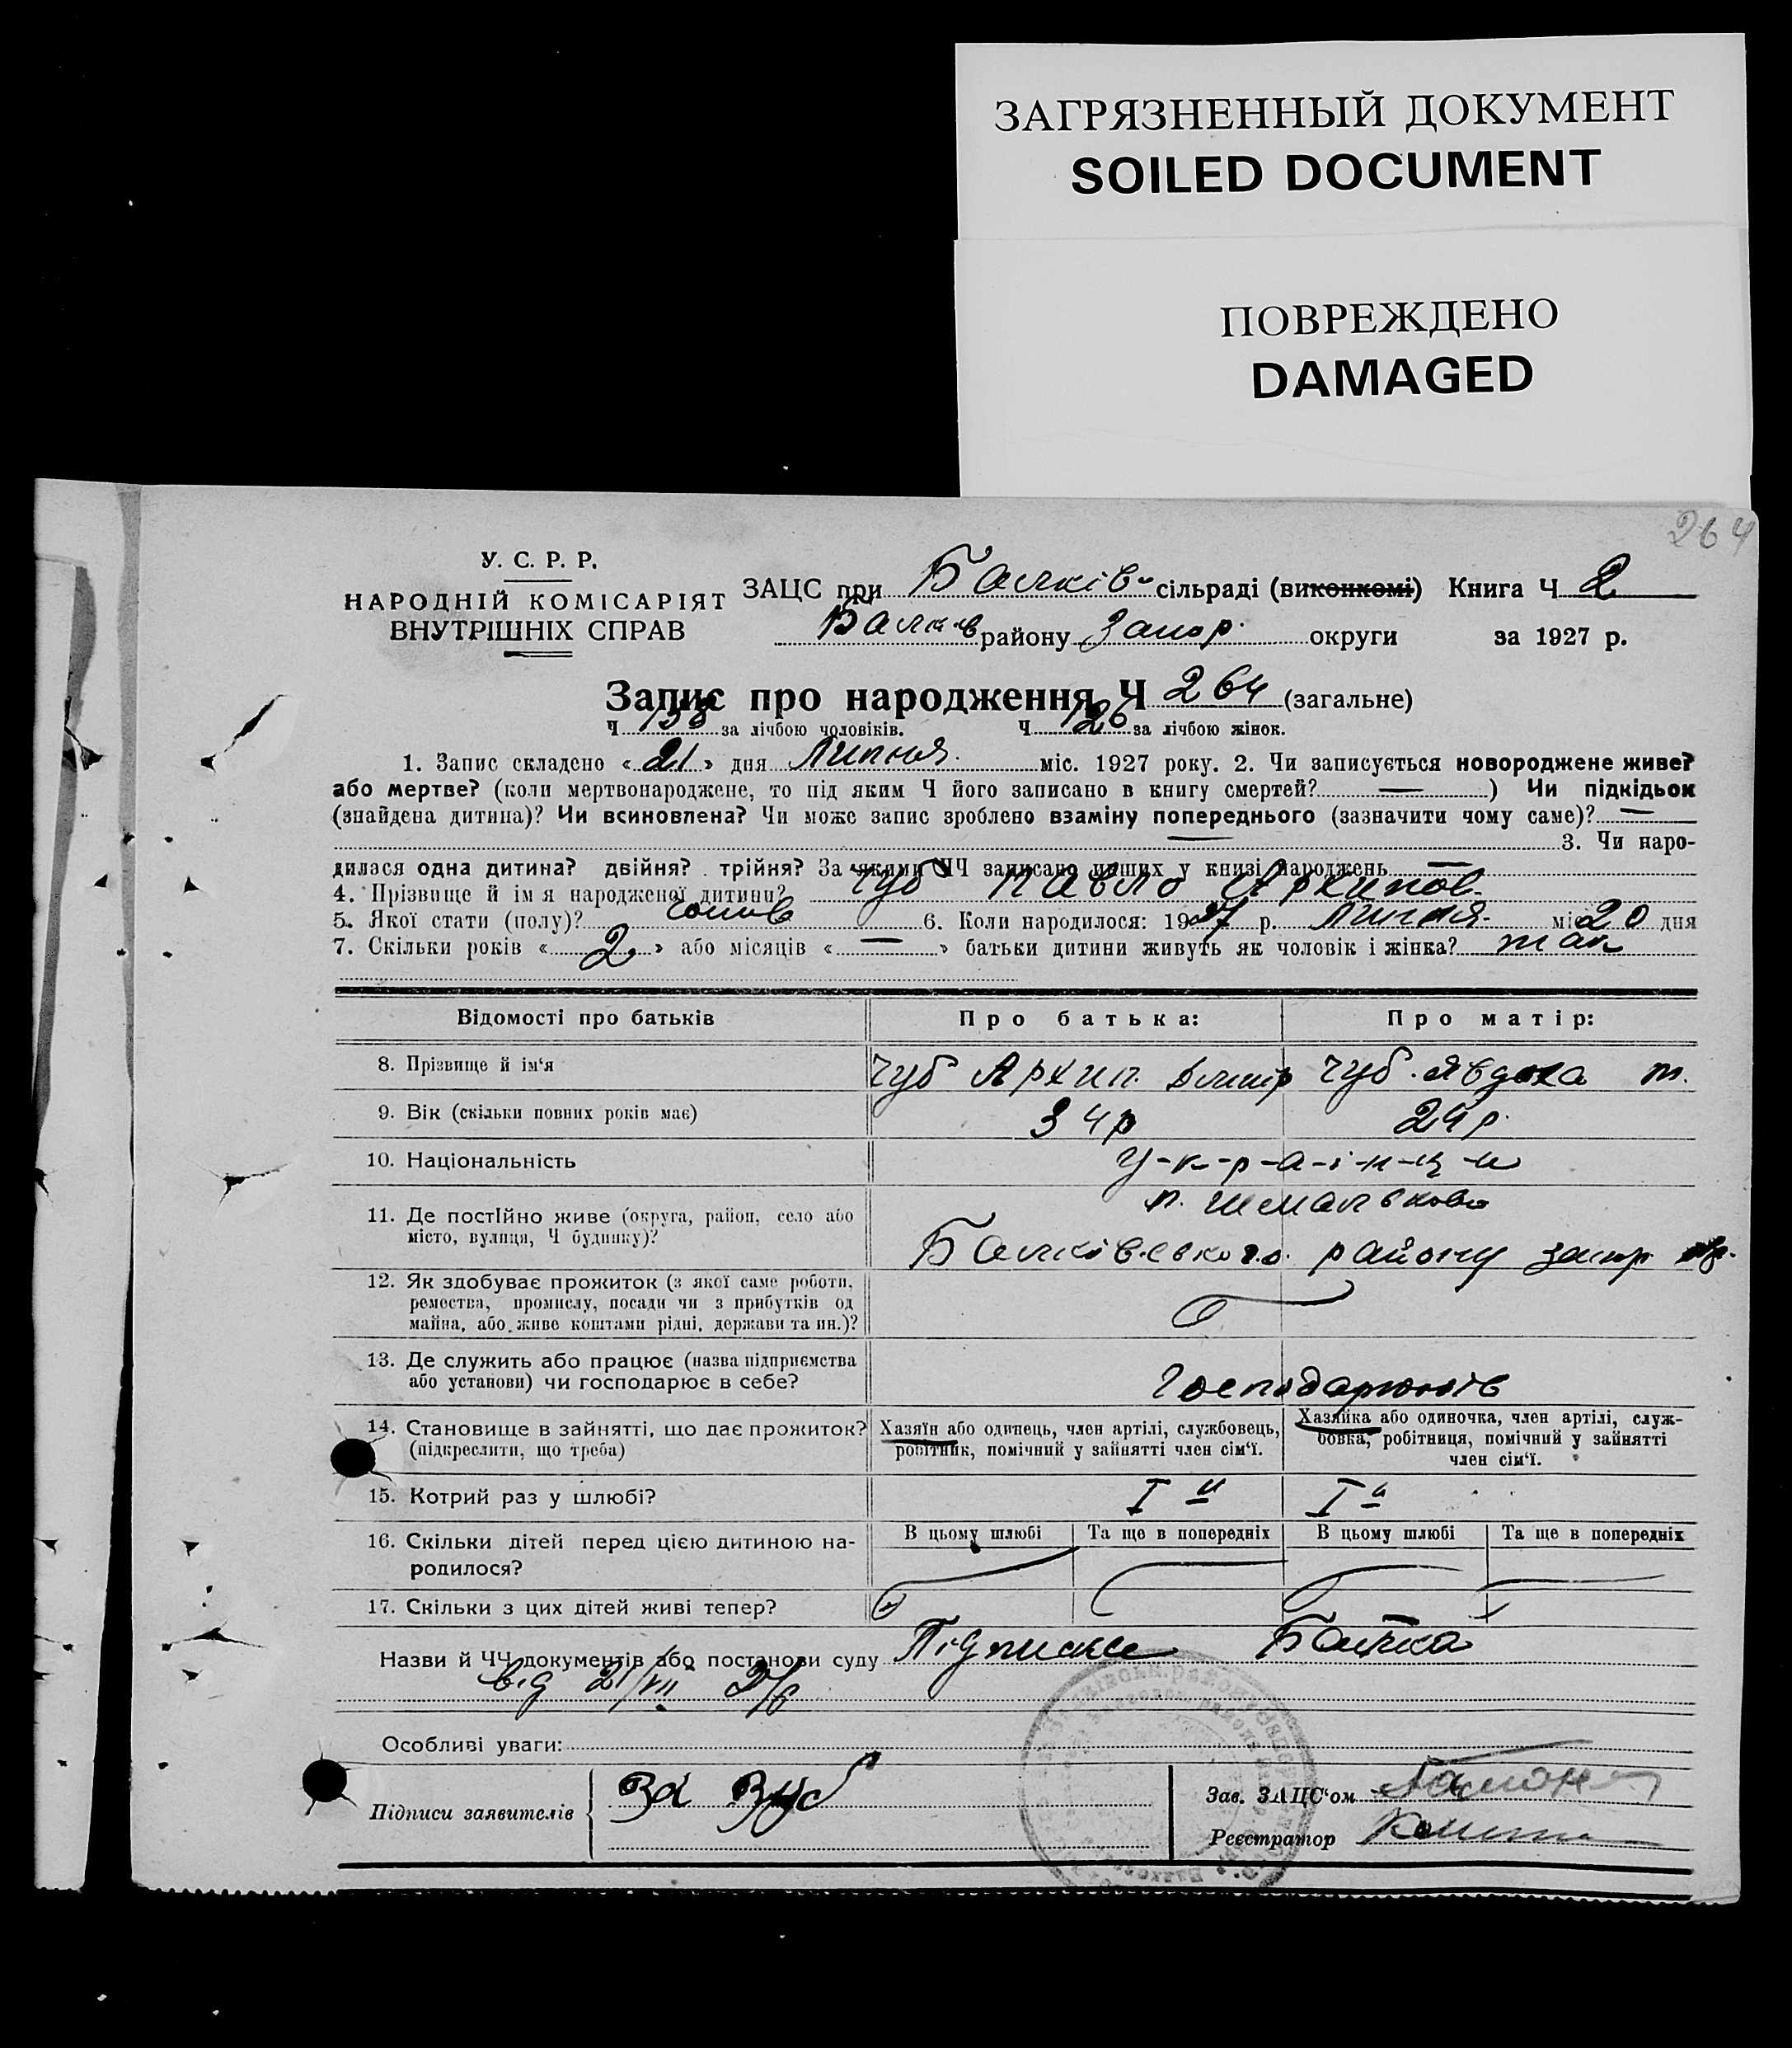 ЗАГРЯЗНЕННЫЙ ДОКУМЕНТ
SOILED DOCUMENT
ПОВРЕЖДЕНО
DAMAGED
264
У. С. Р. Р.
НАРОДНІЙ КОМІСАРІЯТ
ВНУТРІШНІХ СПРАВ
ЗАЦС при Балків- сільраді (виконкомі) Книга Ч 2
Балків району Запор. округи за 1927 р.
Запис про народження Ч 264 (загальне)
Ч 138 за лічбою чоловіків. Ч 126 за лічбою жінок.
1. Запис складено « 21 » дня Липня. міс. 1927 року. 2. Чи записується новороджене живе?
або мертве? (коли мертвонароджене, то під яким Ч його записано в книгу смертей? — ) Чи підкідьок
(знайдена дитина)? Чи всиновлена? Чи може запис зроблено взаміну попереднього (зазначити чому саме)? —
— 3. Чи наро-
дилася одна дитина? двійня? трійня? За якими ЧЧ записано инших у книзі народжень —
4. Прізвище й ім я народженої дитини? Чуб Павло Архипов.
5. Якої стати (полу)? чолов 6. Коли народилося: 1927 р. Липня. міс 20 дня
7. Скільки років « 2 » або місяців « — » батьки дитини живуть як чоловік і жінка? так
Відомості про батьків Про батька: Про матір:
8. Прізвище й ім'я Чуб Архип. Дмитр Чуб. Явдоха т.
9. Вік (скільки повних років має) 34 р 24 р.
10. Національність У-к-р-а-ї-н-ц-и
11. Де постійно живе (округа, район, село або
місто, вулиця, Ч будинку)?
Балківського району запор
12. Як здобуває прожиток (з якої саме роботи,
ремества, промислу, посади чи з прибутків од
майна, або живе коштами рідні, держави та ин.)?
13. Де служить або працює (назва підприємства
або установи) чи господарює в себе?
14. Становище в зайнятті, що дає прожиток?
(підкреслити, що треба)
Хазяїн або одинець, член артілі, службовець,
робітник, помічний у зайнятті член сім'ї.
Хазяйка або одиночка, член артілі, служ-
бовка, робітниця, помічний у зайнятті
член сім'ї.
15. Котрий раз у шлюбі? I й I й
16. Скільки дітей перед цією дитиною на-
родилося?
В цьому шлюбі Та ще в попередніх В цьому шлюбі Та ще в попередніх
17. Скільки з цих дітей живі тепер?
Назви й ЧЧ документів або постанови суду Підписка Батька
від 21/VII 27р
Особливі уваги:
Підписи заявителів За Чуб
Зав. ЗАЦС'ом
Реєстратор